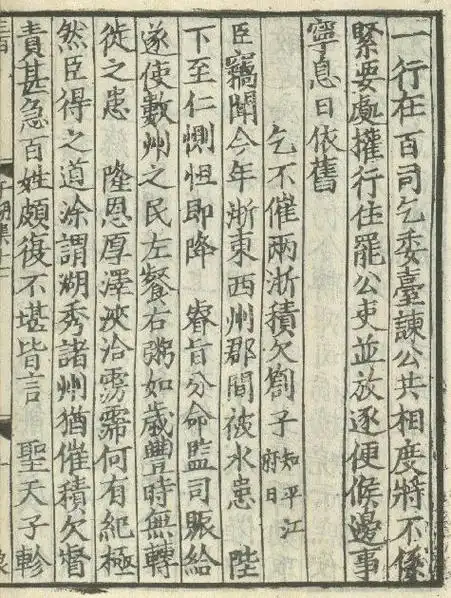 一行在百司乞委臺諫公共相度將不係
緊要處權行住罷公吏並放逐便候邊事
寧息日依舊
乞不催兩浙積欠劄子知平江府日
臣竊聞今年浙東西州郡間被水患 陛
下至仁惻怛即降 睿旨分命監司賑給
遂使數州之民左餐右粥如歲豐時無轉
徙之患 隆恩厚澤浹洽霶霈何有紀極
然臣得之道涂謂湖秀諸州猶催積欠督
責甚急百姓頗復不堪皆言 聖天子軫